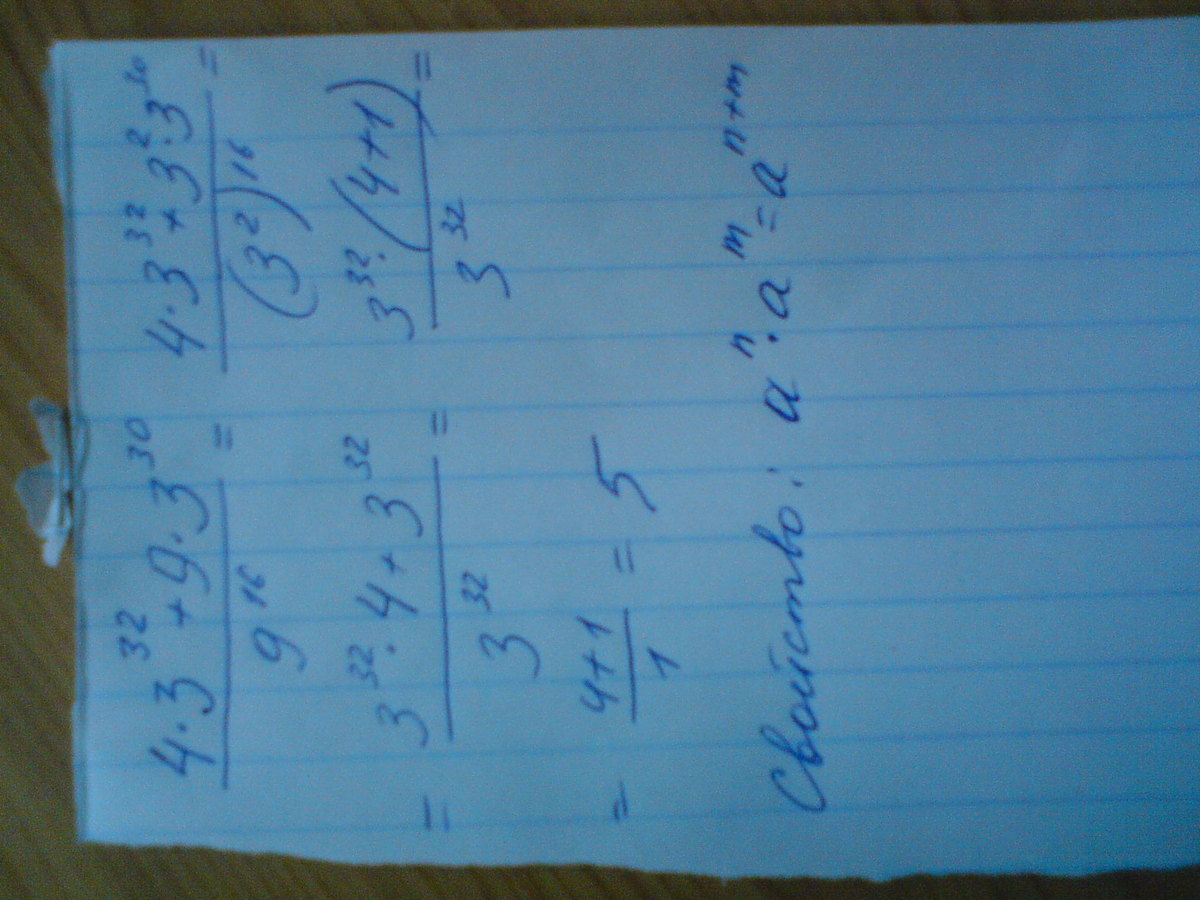 (4·3³²+9·3³⁰)/9¹⁶ = (4·3³²+3²·3³⁰)/(3²)¹⁶ =
= (3³²·4+3³²)/3³² = (3³²·(4+1))/3³² =
= (4+1)/1 = 5
Свойство: aⁿ·aᵐ=aⁿ⁺ᵐ